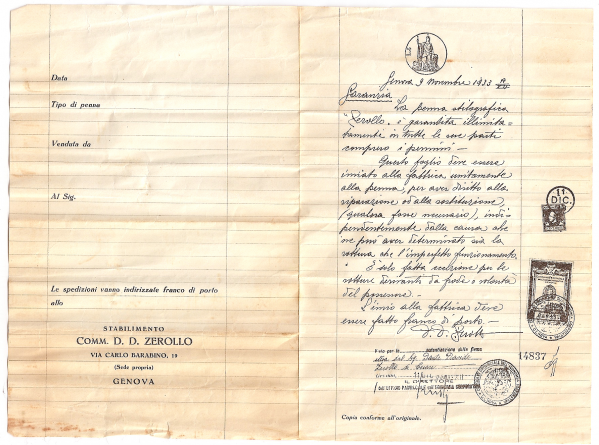 Data
Tipo di penna
Venduta da
Al Sig.
Le spedizioni vanno indirizzate franco di porto
allo
STABILIMENTO
COMM. D. D. ZEROLLO
VIA CARLO BARABINO, 19
(Sede propria)
GENOVA
Genova 9 Novembre 1933
Garanzia
La penna stilografica
"Zerollo" è garantita illimita-
tamente in tutte le sue parti
compreso i pennini -
Questo foglio deve essere
inviato alla fabbrica unitamente
alla penna, per aver diritto alla
riparazione od alla sostituzione,
(qualora fosse necessario), indi-
pendentemente dalla causa che
ne può aver determinato sia la
rottura che l'imperfetto funzionamento.
È solo fatta eccezione per le
rotture derivanti da frode o volontà
del possessore.
L'invio alla fabbrica deve
essere fatto franco di porto.
D. D. Zerollo
11
DIC.
Visto per la autenticazione della firma
del Sig.
Zerollo
IL DIRETTORE
14837
Copia conforme all'originale.